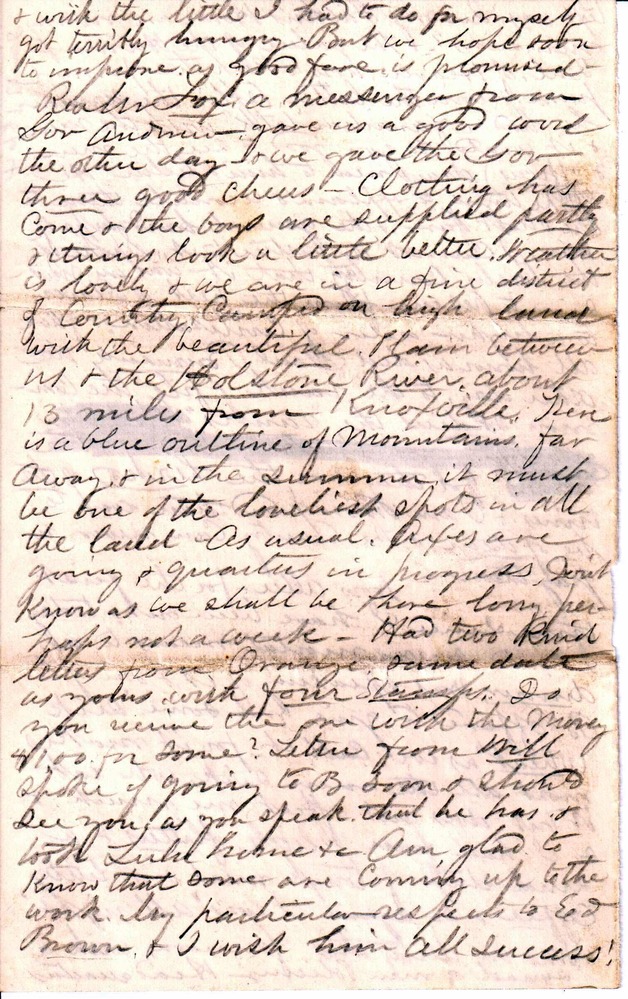 & with the little I had to do for myself
got terribly hungry But we hope soon
to improve. as good fare is promised
Rev Mr Fox, a messenger from
Gov Andrew, gave us a good word
the other day & we gave the Gov
three good cheers - Clothing has
Come & the boys are supplied partly
& things look a little better. Weather
is lovely & we are in a fine district
of Country, Camped on high land
with the beautiful. Plain between
us & the Holstone River, about
13 miles from Knoxville, There
is a blue outline of Mountains. far
away & in the summer it must
be one of the loveliest spots in all
the land As usual. Axes are
going & quarters in progress, Don't
Know as we shall be there long per-
haps not a week - Had two kind
letters from Orange, same date
as yours with four Stamps. Do
you receive the one with the money
$1.00 for some? Letter from Will
spoke of going to B soon & should
see you, as you speak. that he has &
took Lulu home &c Am glad to
Know that some are Coming up to the
work. My particular respects to Ed
Brown, & I wish him all success!